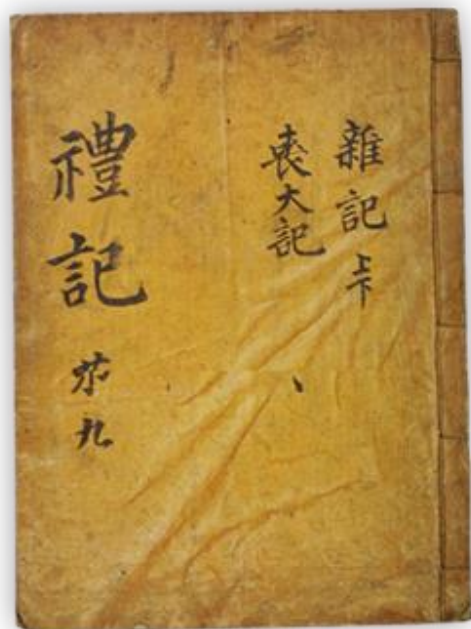 雜記 上下
喪大記
禮記 苐九